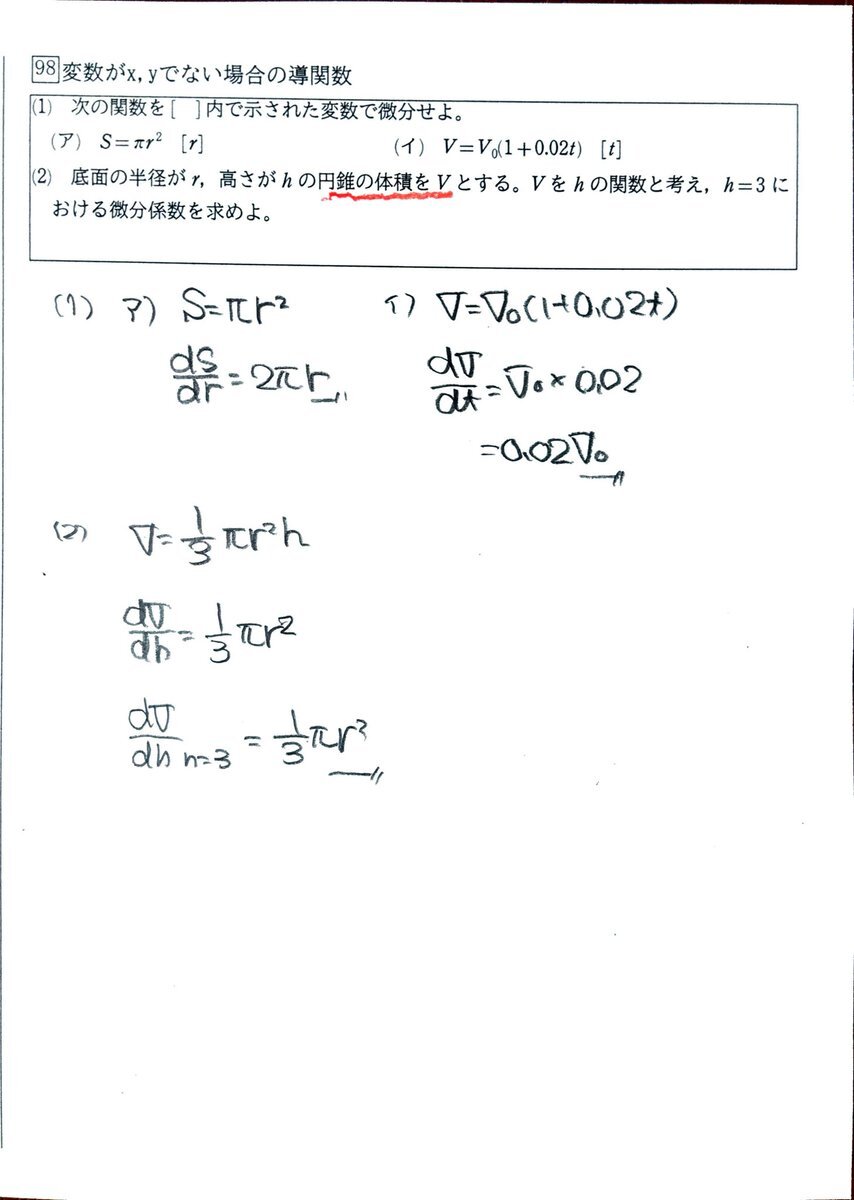 98 変数がx, yでない場合の導関数
(1) 次の関数を［ ］内で示された変数で微分せよ。
(ア) S=πr² [r] (イ) V=V₀(1+0.02t) [t]
(2) 底面の半径が r, 高さが h の円錐の体積を V とする。V を h の関数と考え, h=3 に
おける微分係数を求めよ。
(1) ア) S=πr² イ) V=V₀(1+0.02t)
dS/dr=2πr dV/dt=V₀×0.02
=0.02V₀
(2) V=1/3 πr²h
dV/dh=1/3 πr²
dV/dh h=3 = 1/3 πr²